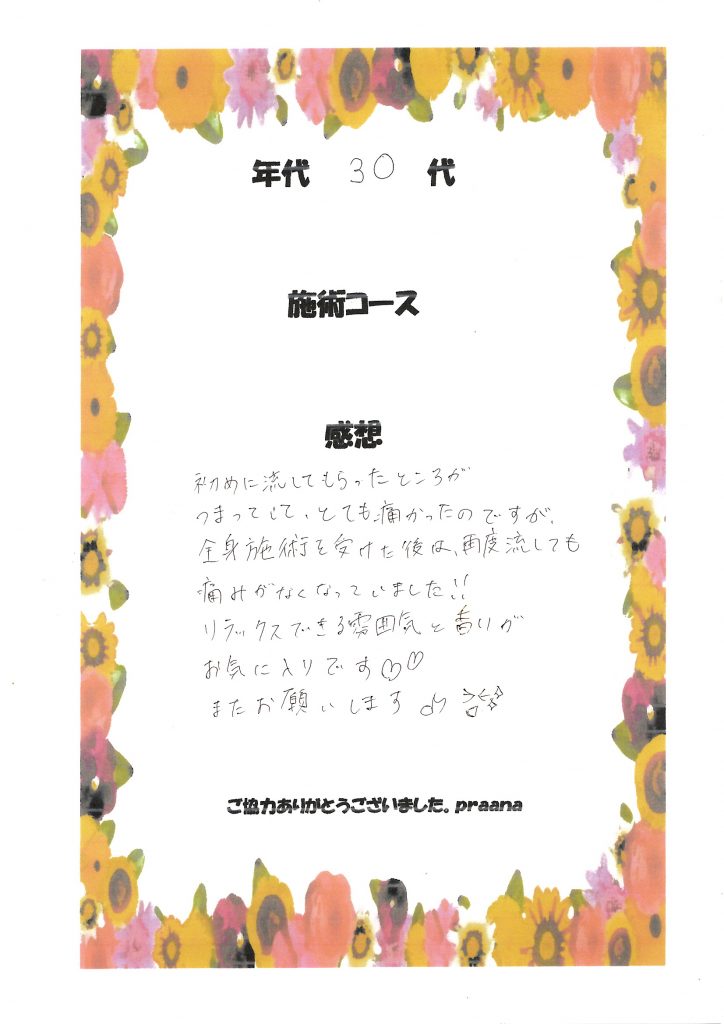 年代 30 代
施術コース
感想
初めに流してもらったところが
つまっていて、とても痛かったのですが、
全身施術を受けた後は、再度流しても
痛みがなくなっていました!!
リラックスできる雰囲気と香りが
お気に入りです♡♡
またお願いします
ご協力ありがとうございました。praana